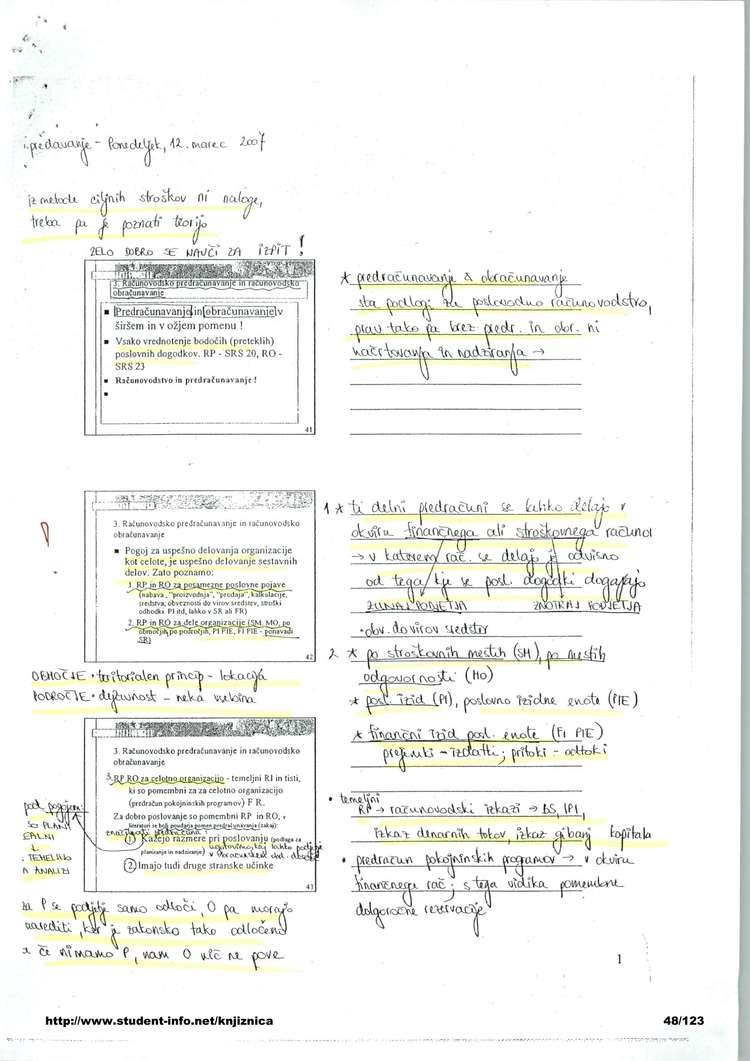 predavanje - Ponedeljek, 12. marec 2007
iz metode ciljnih stroškov ni naloge,
treba pa je poznati teorijo
ZELO DOBRO SE NAUČI ZA IZPIT !
3. Računovodsko predračunavanje in računovodsko
obračunavanje
Predračunavanje in obračunavanje v
širšem in v ožjem pomenu !
Vsako vrednotenje bodočih (preteklih)
poslovnih dogodkov. RP - SRS 20, RO -
SRS 23
Računovodstvo in predračunavanje !
41
* predračunavanje & obračunavanje
sta podlagi za poslovodno računovodstvo,
prav tako pa brez predr. in obr. ni
načrtovanja in nadziranja →
3. Računovodsko predračunavanje in računovodsko
obračunavanje
Pogoj za uspešno delovanja organizacije
kot celote, je uspešno delovanje sestavnih
delov. Zato poznamo:
1. RP in RO za posamezne poslovne pojave
(nabava, "proizvodnja", "prodaja", kalkulacije,
sredstva, obveznosti do virov sredstev, stroški
odhodki. PI itd, lahko v SR ali FR)
2. RP in RO za dele organizacije (SM, MO, po
območjih, po področjih, PI PIE, FI PIE - ponavadi
SR)
42
1 * ti delni predračuni se lahko delajo v
okviru finančnega ali stroškovnega računov
→ v katerem rač. se delajo je odvisno
od tega kje se posl. dogodki dogajajo
ZUNAJ PODJETJA ZNOTRAJ PODJETJA
• obv. do virov sredstev
2 * po stroškovnih mestih (SM), po mestih
odgovornosti (MO)
* posl. izid (PI), poslovno izidne enote (PIE)
* finančni izid posl. enote (FI PIE)
prejemki - izdatki; pritoki - odtoki
OBMOČJE • teritorialen princip - lokacija
PODROČJE • dejavnost - neka vsebina
3. Računovodsko predračunavanje in računovodsko
obračunavanje
3. RP RO za celotno organizacijo - temeljni RI in tisti,
ki so pomembni za za celotno organizacijo
(predračun pokojninskih programov) F R.
Za dobro poslovanje so pomembni RP in RO, v
literaturi se bolj poudarja pomen predračunavanja (zakaj):
1 Kažejo razmere pri poslovanju (podlaga za
planiranje in nadziranje)
2 Imajo tudi druge stranske učinke
43
pod pogojem:
SO PLANI
REALNI
↓
TEMELJIJO
NA ANALIZI
• temeljni
RP → računovodski izkazi → BS, IPI,
izkaz denarnih tokov, izkaz gibanj kapitala
• predračun pokojninskih programov → v okviru
finančnega rač; s tega vidika pomembne
dolgoročne rezervacije
za P se podjetje samo odloči, O pa morajo
narediti, ker je zakonsko tako določeno
* če nimamo P, nam O nič ne pove
1
http://www.student-info.net/knjiznica
48/123